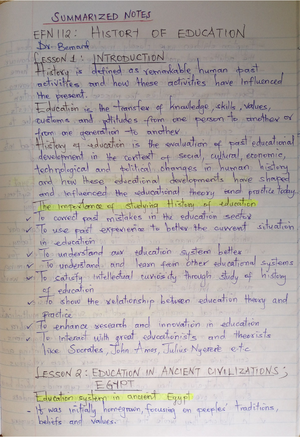 SUMMARIZED NOTES
EFN 112: HISTORY OF EDUCATION
Dr. Bernard
LESSON 1: INTRODUCTION
History is defined as remarkable human past
activities and how these activities have influenced
the present.
Education is the transfer of knowledge, skills, values,
customs and attitudes from one person to another or
from one generation to another
History of education is the evaluation of past educational
development in the context of social, cultural, economic,
technological and political changes in human history
and how these educational developments have shaped
and influenced the educational theory and practice today
The importance of studying History of education
✓ To correct past mistakes in the education sector
✓ To use past experience to better the current situation
in education
✓ To understand our education system better
✓ To understand and learn from other educational systems
✓ To satisfy intellectual curiosity through study of history
of education
✓ To show the relationship between education theory and
practice
✓ To enhance research and innovation in education
✓ To interact with great educationists and theorists
like Socrates, John Amos, Julius Nyerere e.t.c
LESSON 2: EDUCATION IN ANCIENT CIVILIZATIONS;
EGYPT
Education system in ancient Egypt.
It was initially homegrown, focusing on peoples' traditions,
beliefs and values.